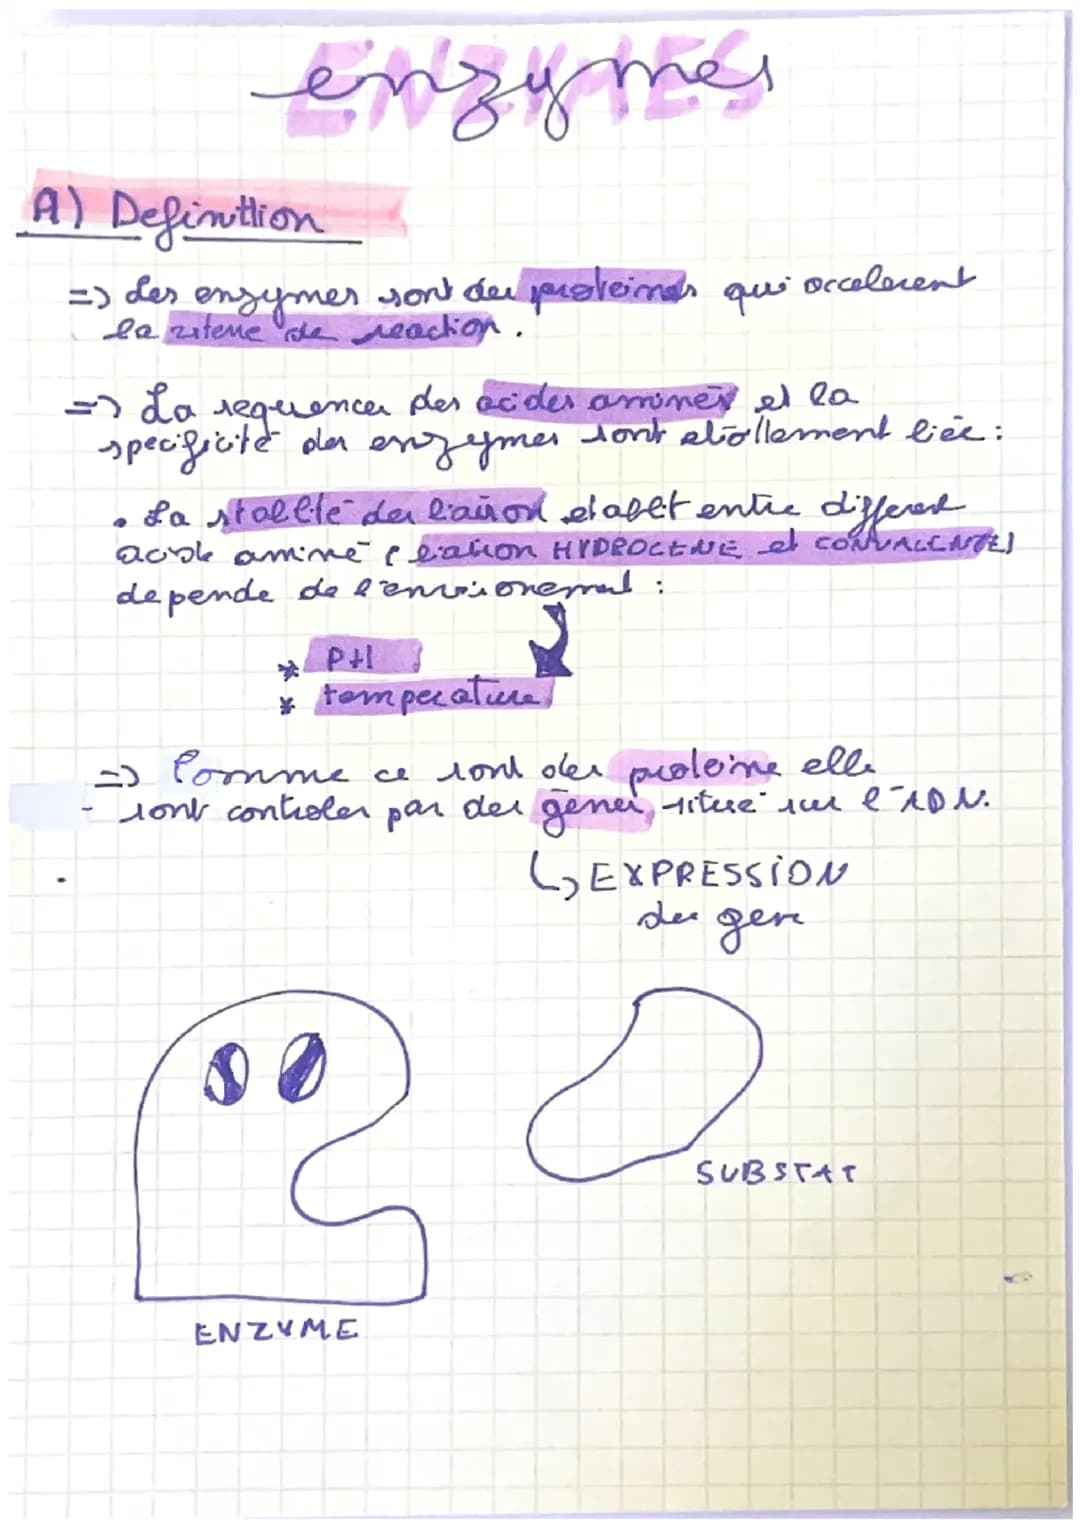 ENZYMES
enzymes
A) Definition
=> Les enzymes sont des proteines qui accelerent
la vitesse de reaction.
=> La sequences des acides aminés et la
specificité des enzymes sont etroitement liée :
• La stabilité des liaison etablit entre different
acide aminé (liaison HYDROGENE et CONVALLENTES)
depende de l'environement :
* PH
* temperature
=> Comme ce sont des proteine elle
- sont controler par des gènes, situé sur l'ADN.
↳ EXPRESSION
des gene
SUBSTAT
ENZYME